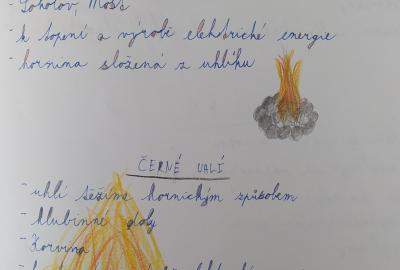 - Sokolov, Most
- k topení a výrobě elektrické energie
- hornina složená z uhlíku
ČERNÉ UHLÍ
- uhlí těžíme hornickým způsobem
- hlubinné doly
- Korvina